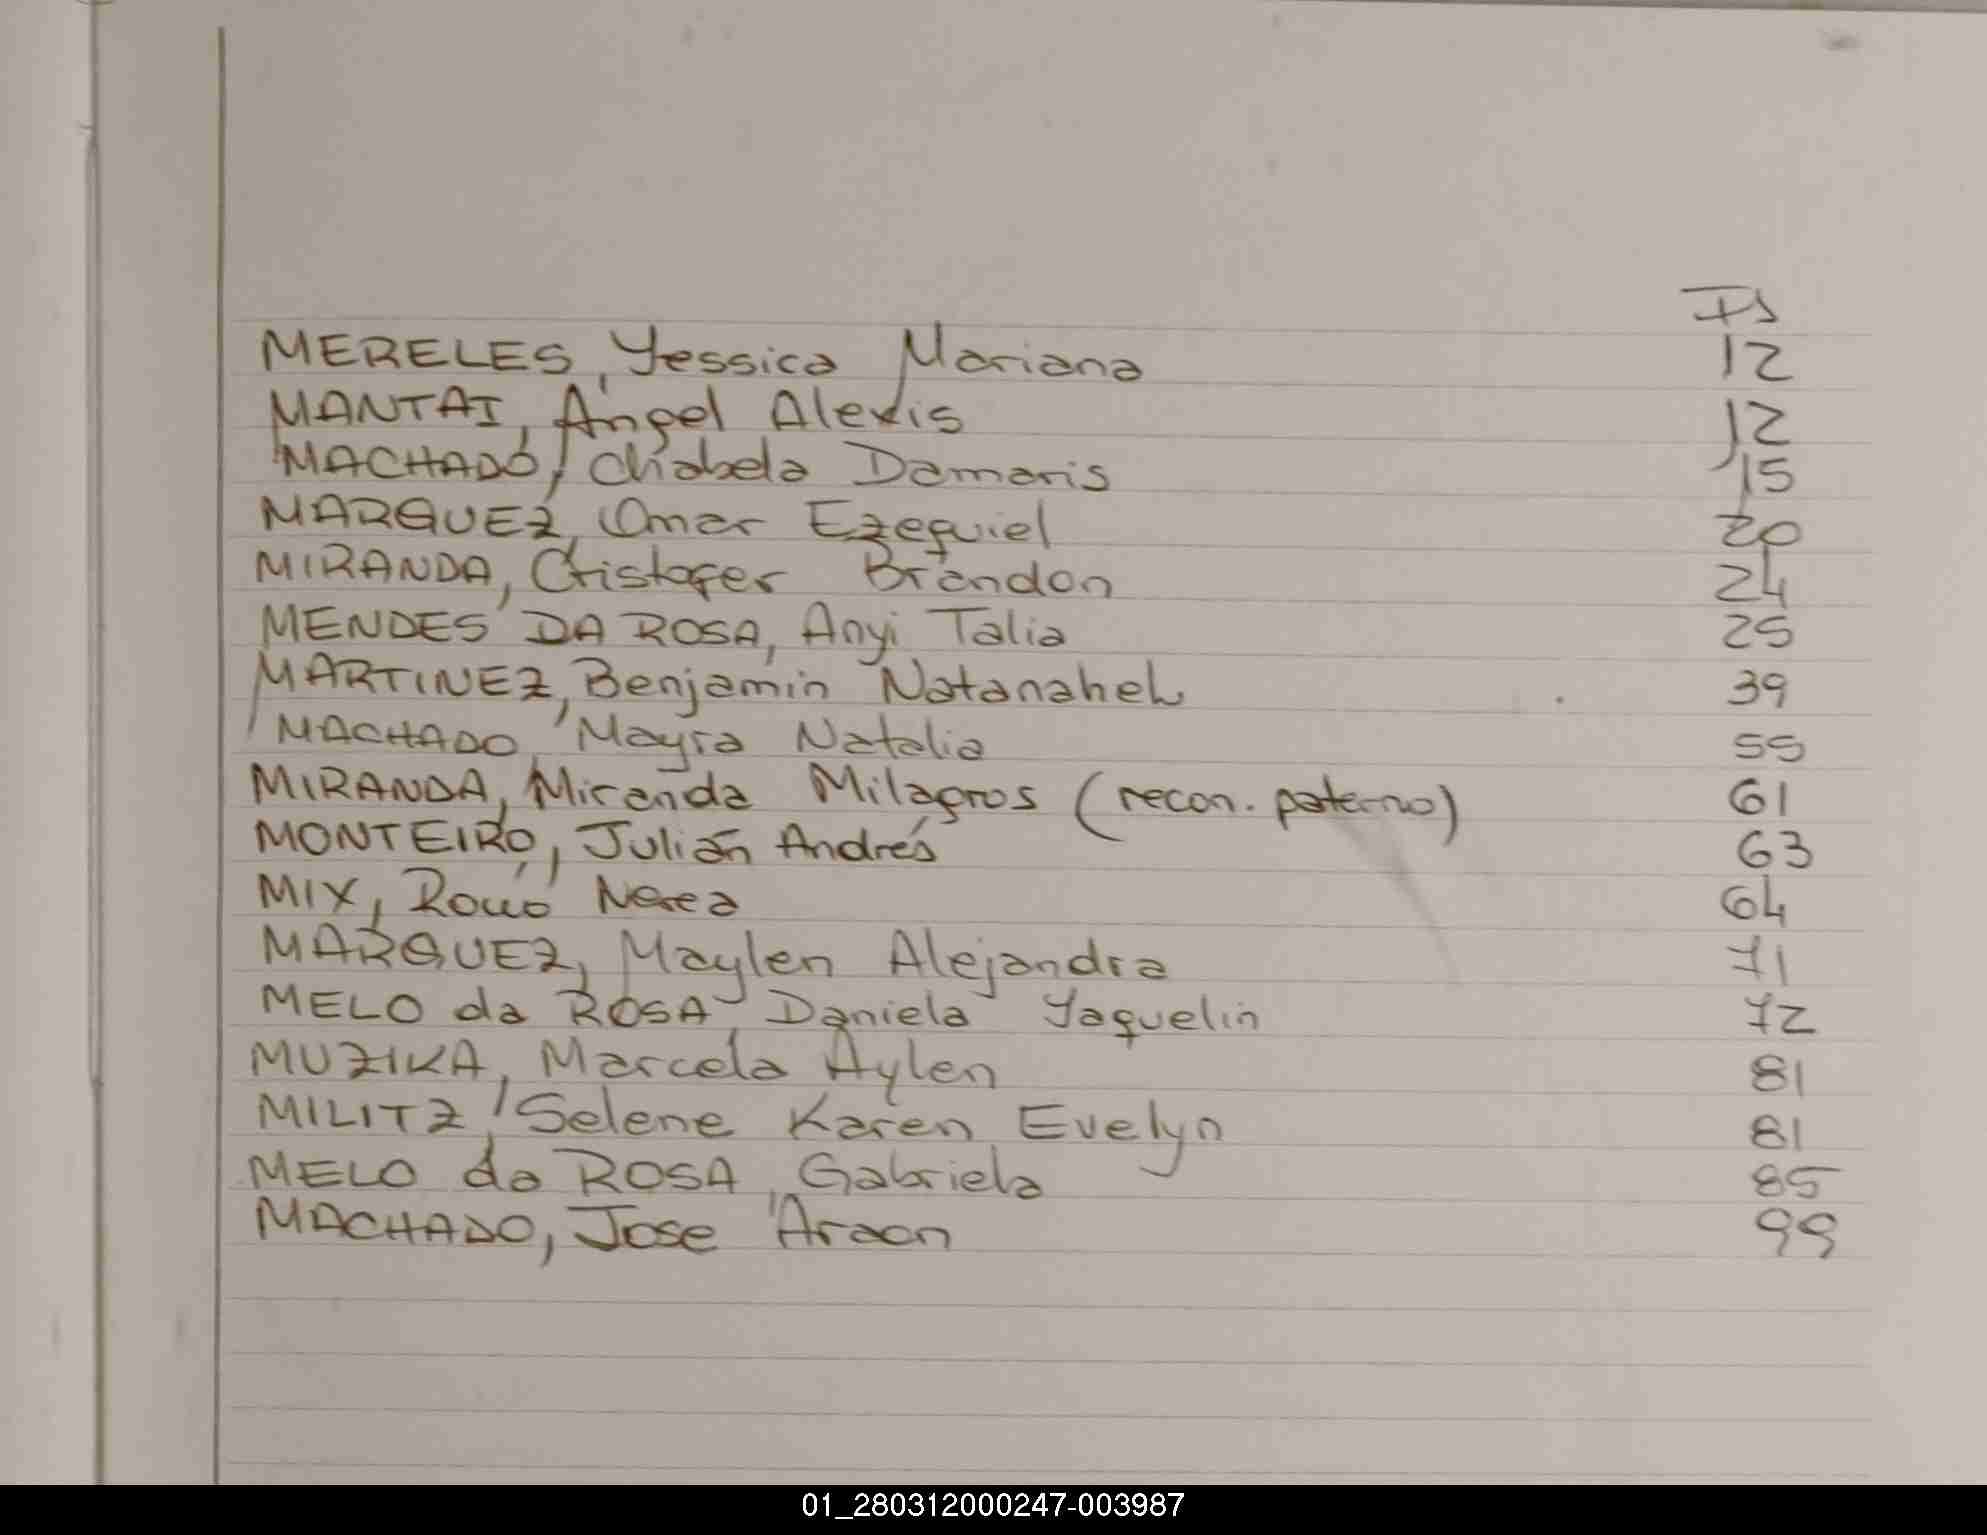 Fs
MERELES, Yessica Mariana 12
MANTAI, Angel Alexis 12
MACHADO, Chabela Damaris 15
MARQUEZ, Omar Ezequiel 20
MIRANDA, Cristofer Brandon 24
MENDES DA ROSA, Anyi Talia 25
MARTINEZ, Benjamin Natanahel 39
MACHADO, Mayra Natalia 55
MIRANDA, Miranda Milagros (recon. paterno) 61
MONTEIRO, Julián Andrés 63
MIX, Rocío Nerea 64
MARQUEZ, Maylen Alejandra 71
MELO da ROSA, Daniela Yaquelin 72
MUZIKA, Marcela Aylen 81
MILITZ, Selene Karen Evelyn 81
MELO da ROSA, Gabriela 85
MACHADO, Jose Araon 99
01_280312000247-003987